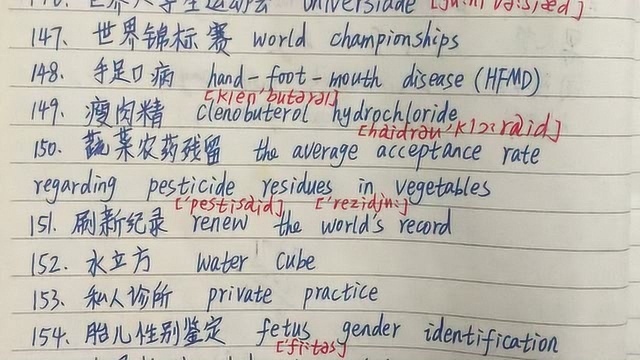 universiade [ju:ni'və:siæd]
147、世界锦标赛 world championships
148、手足口病 hand-foot-mouth disease (HFMD)
[klen'butərəl]
149、瘦肉精 clenobuterol hydrochloride
[haidrəu'klɔ:raid]
150、蔬菜农药残留 the average acceptance rate
regarding pesticide residues in vegetables
['pestisaid] ['rezidju:]
151、刷新纪录 renew the world's record
152、水立方 water cube
153、私人诊所 private practice
154、胎儿性别鉴定 fetus gender identification
['fi:təs]